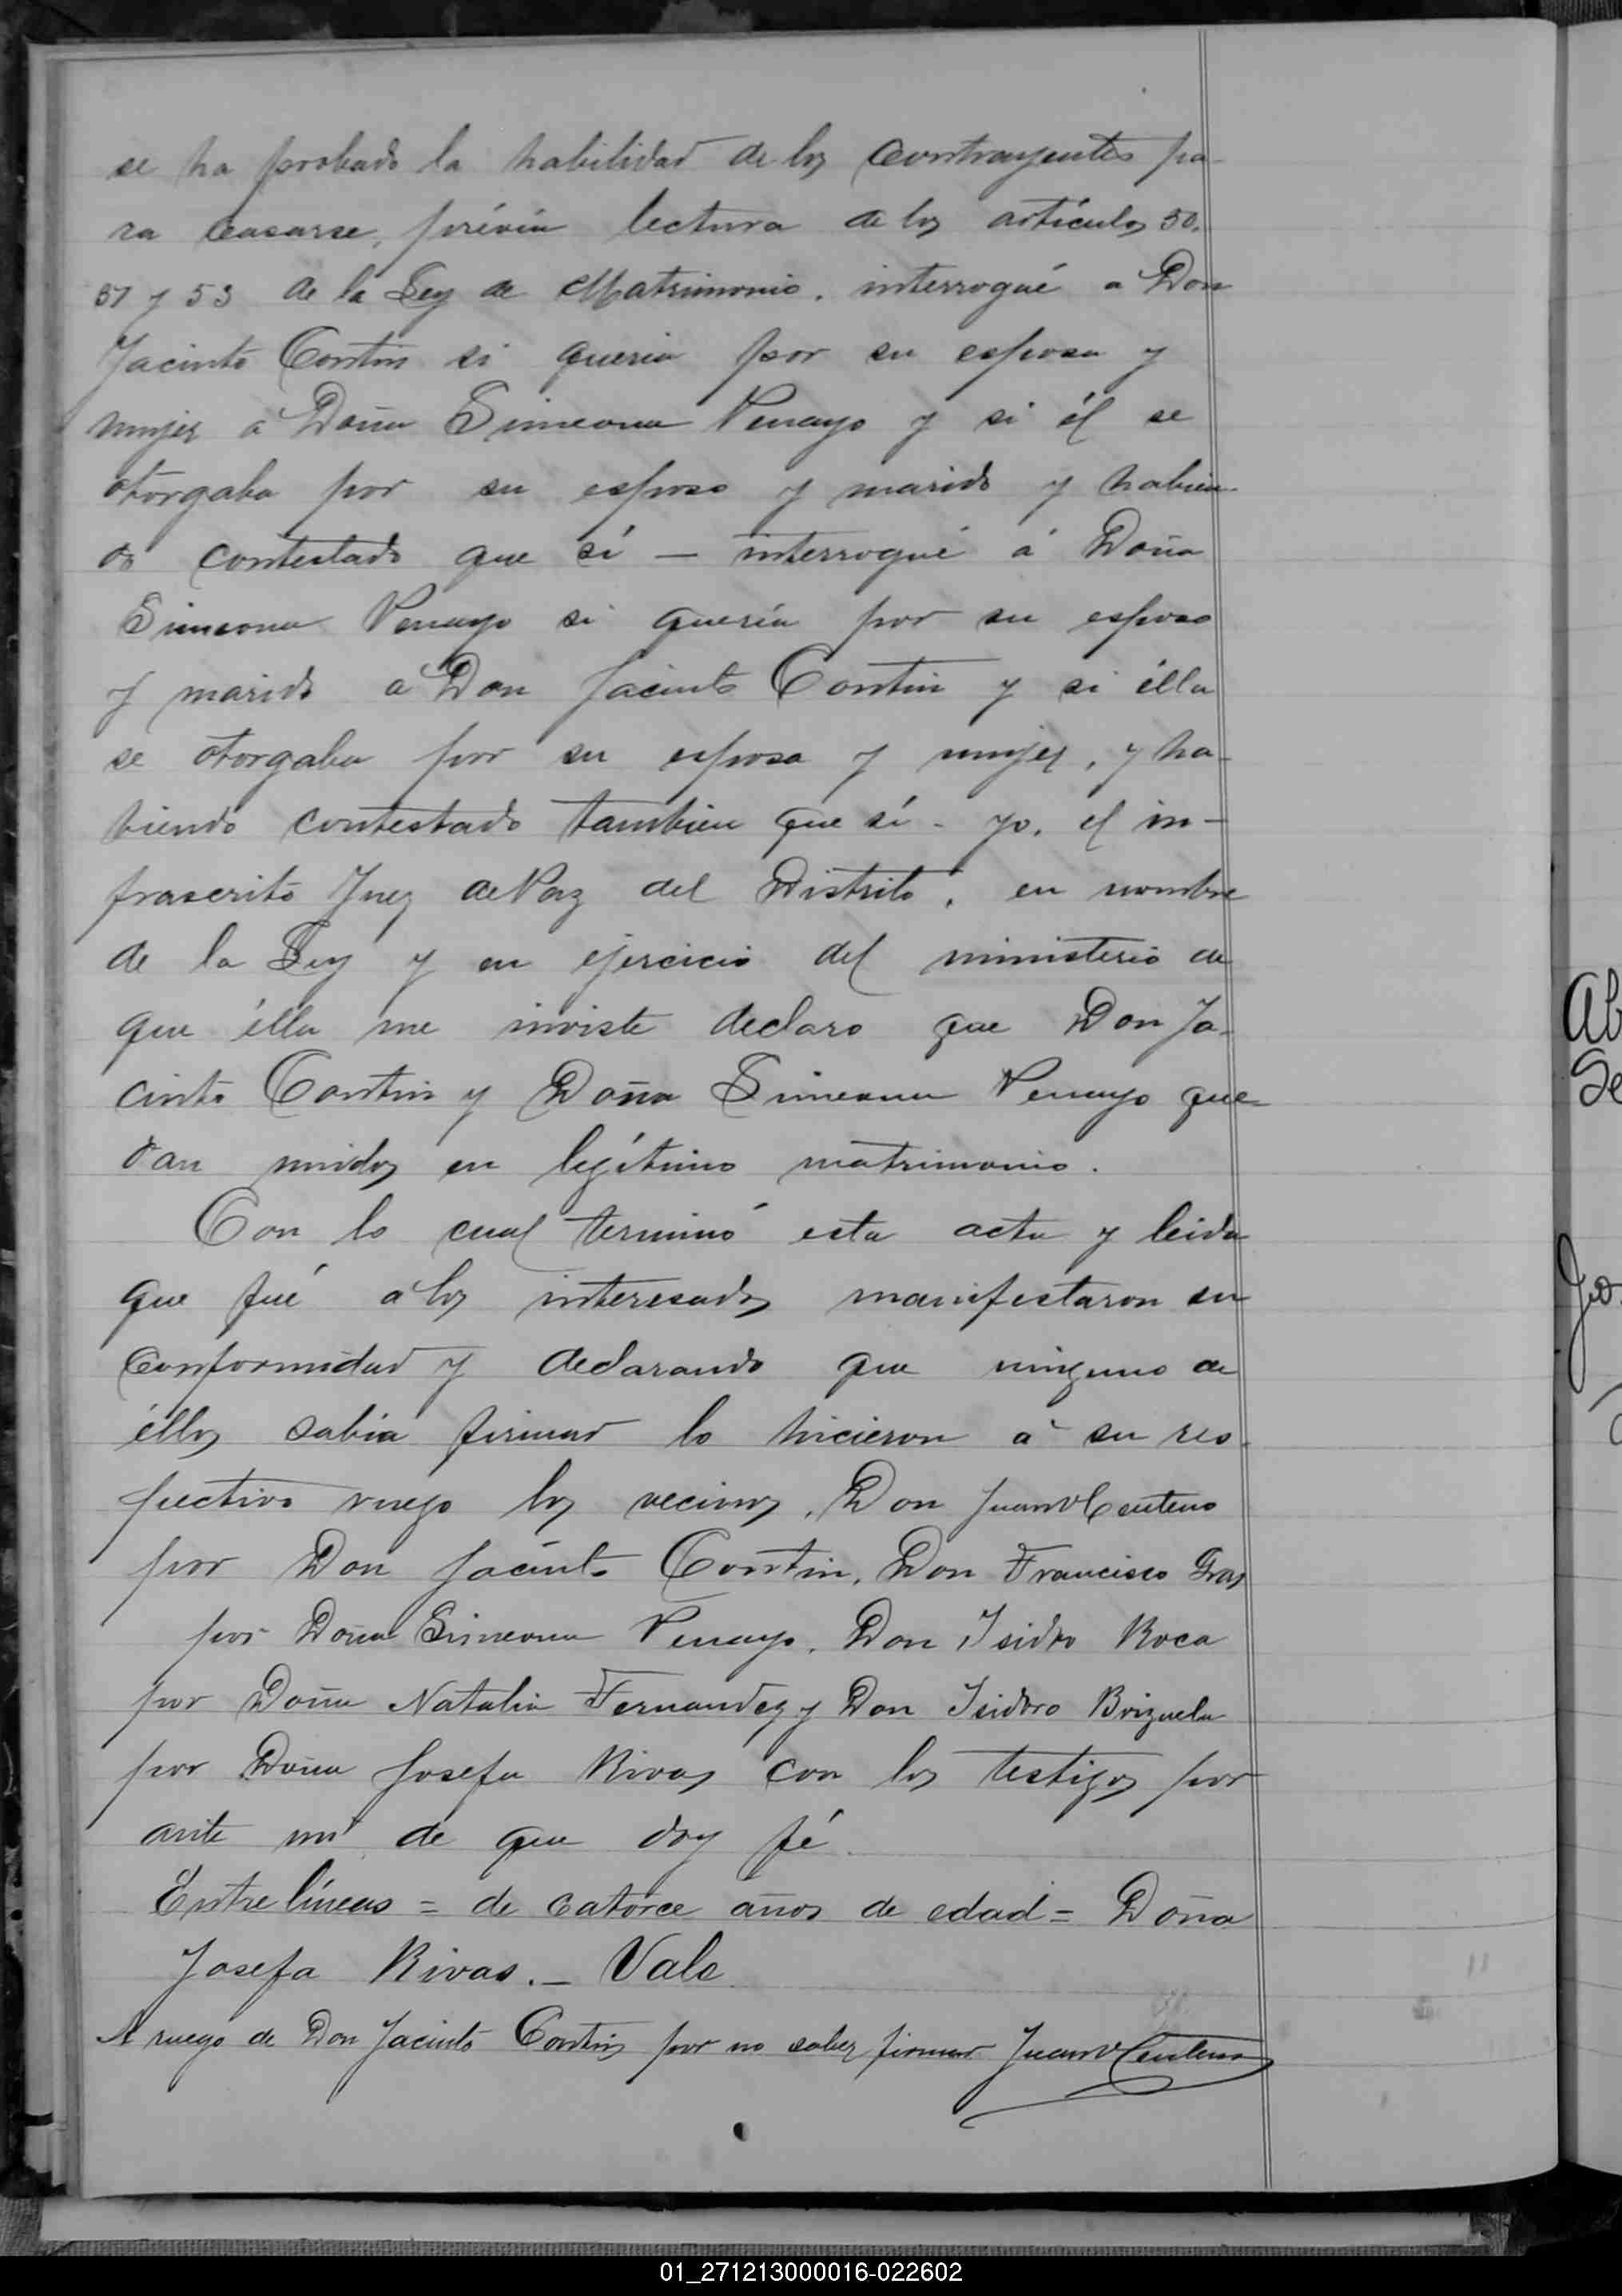 se ha probado la habilidad de los contrayentes pa-
ra casarse, prévia lectura de los artículos 50.
51 y 53 de la Ley de Matrimonio. interrogué a Don
Jacinto Contin si queria por su esposa y
mujer a Doña Simeona Penayo y si él se
otorgaba por su esposo y marido y habien
do contestado que sí — interrogué á Doña
Simeona Penayo si quería por su esposo
y marido a Don Jacinto Contin y si élla
se otorgaba por su esposa y mujer, y ha-
biendo contestado tambien que sí - yo, el in-
frascrito Juez de Paz del Distrito, en nombre
de la Ley y en ejercicio del ministerio de
que élla me inviste declaro que Don Ja-
cinto Contin y Doña Simeona Penayo que-
dan unidos en legítimo matrimonio.
Con lo cual terminó esta acta y leida
que fué a los interesados manifestaron su
conformidad y declarando que ninguno de
éllos sabia firmar lo hicieron á su res-
pectivo ruego los vecinos, Don Juan V Centeno
por Don Jacinto Contin, Don Francisco Gras
por Doña Simeona Penayo, Don Isidro Roca
por Doña Natalia Fernandez y Don Isidoro Brizuela
por Doña Josefa Rivas con los testigos por
ante mí de que doy fé.
Entre líneas = de catorce años de edad = Doña
Josefa Rivas. — Vale
A ruego de Don Jacinto Contin por no saber firmar Juan V Centeno
01_271213000016-022602